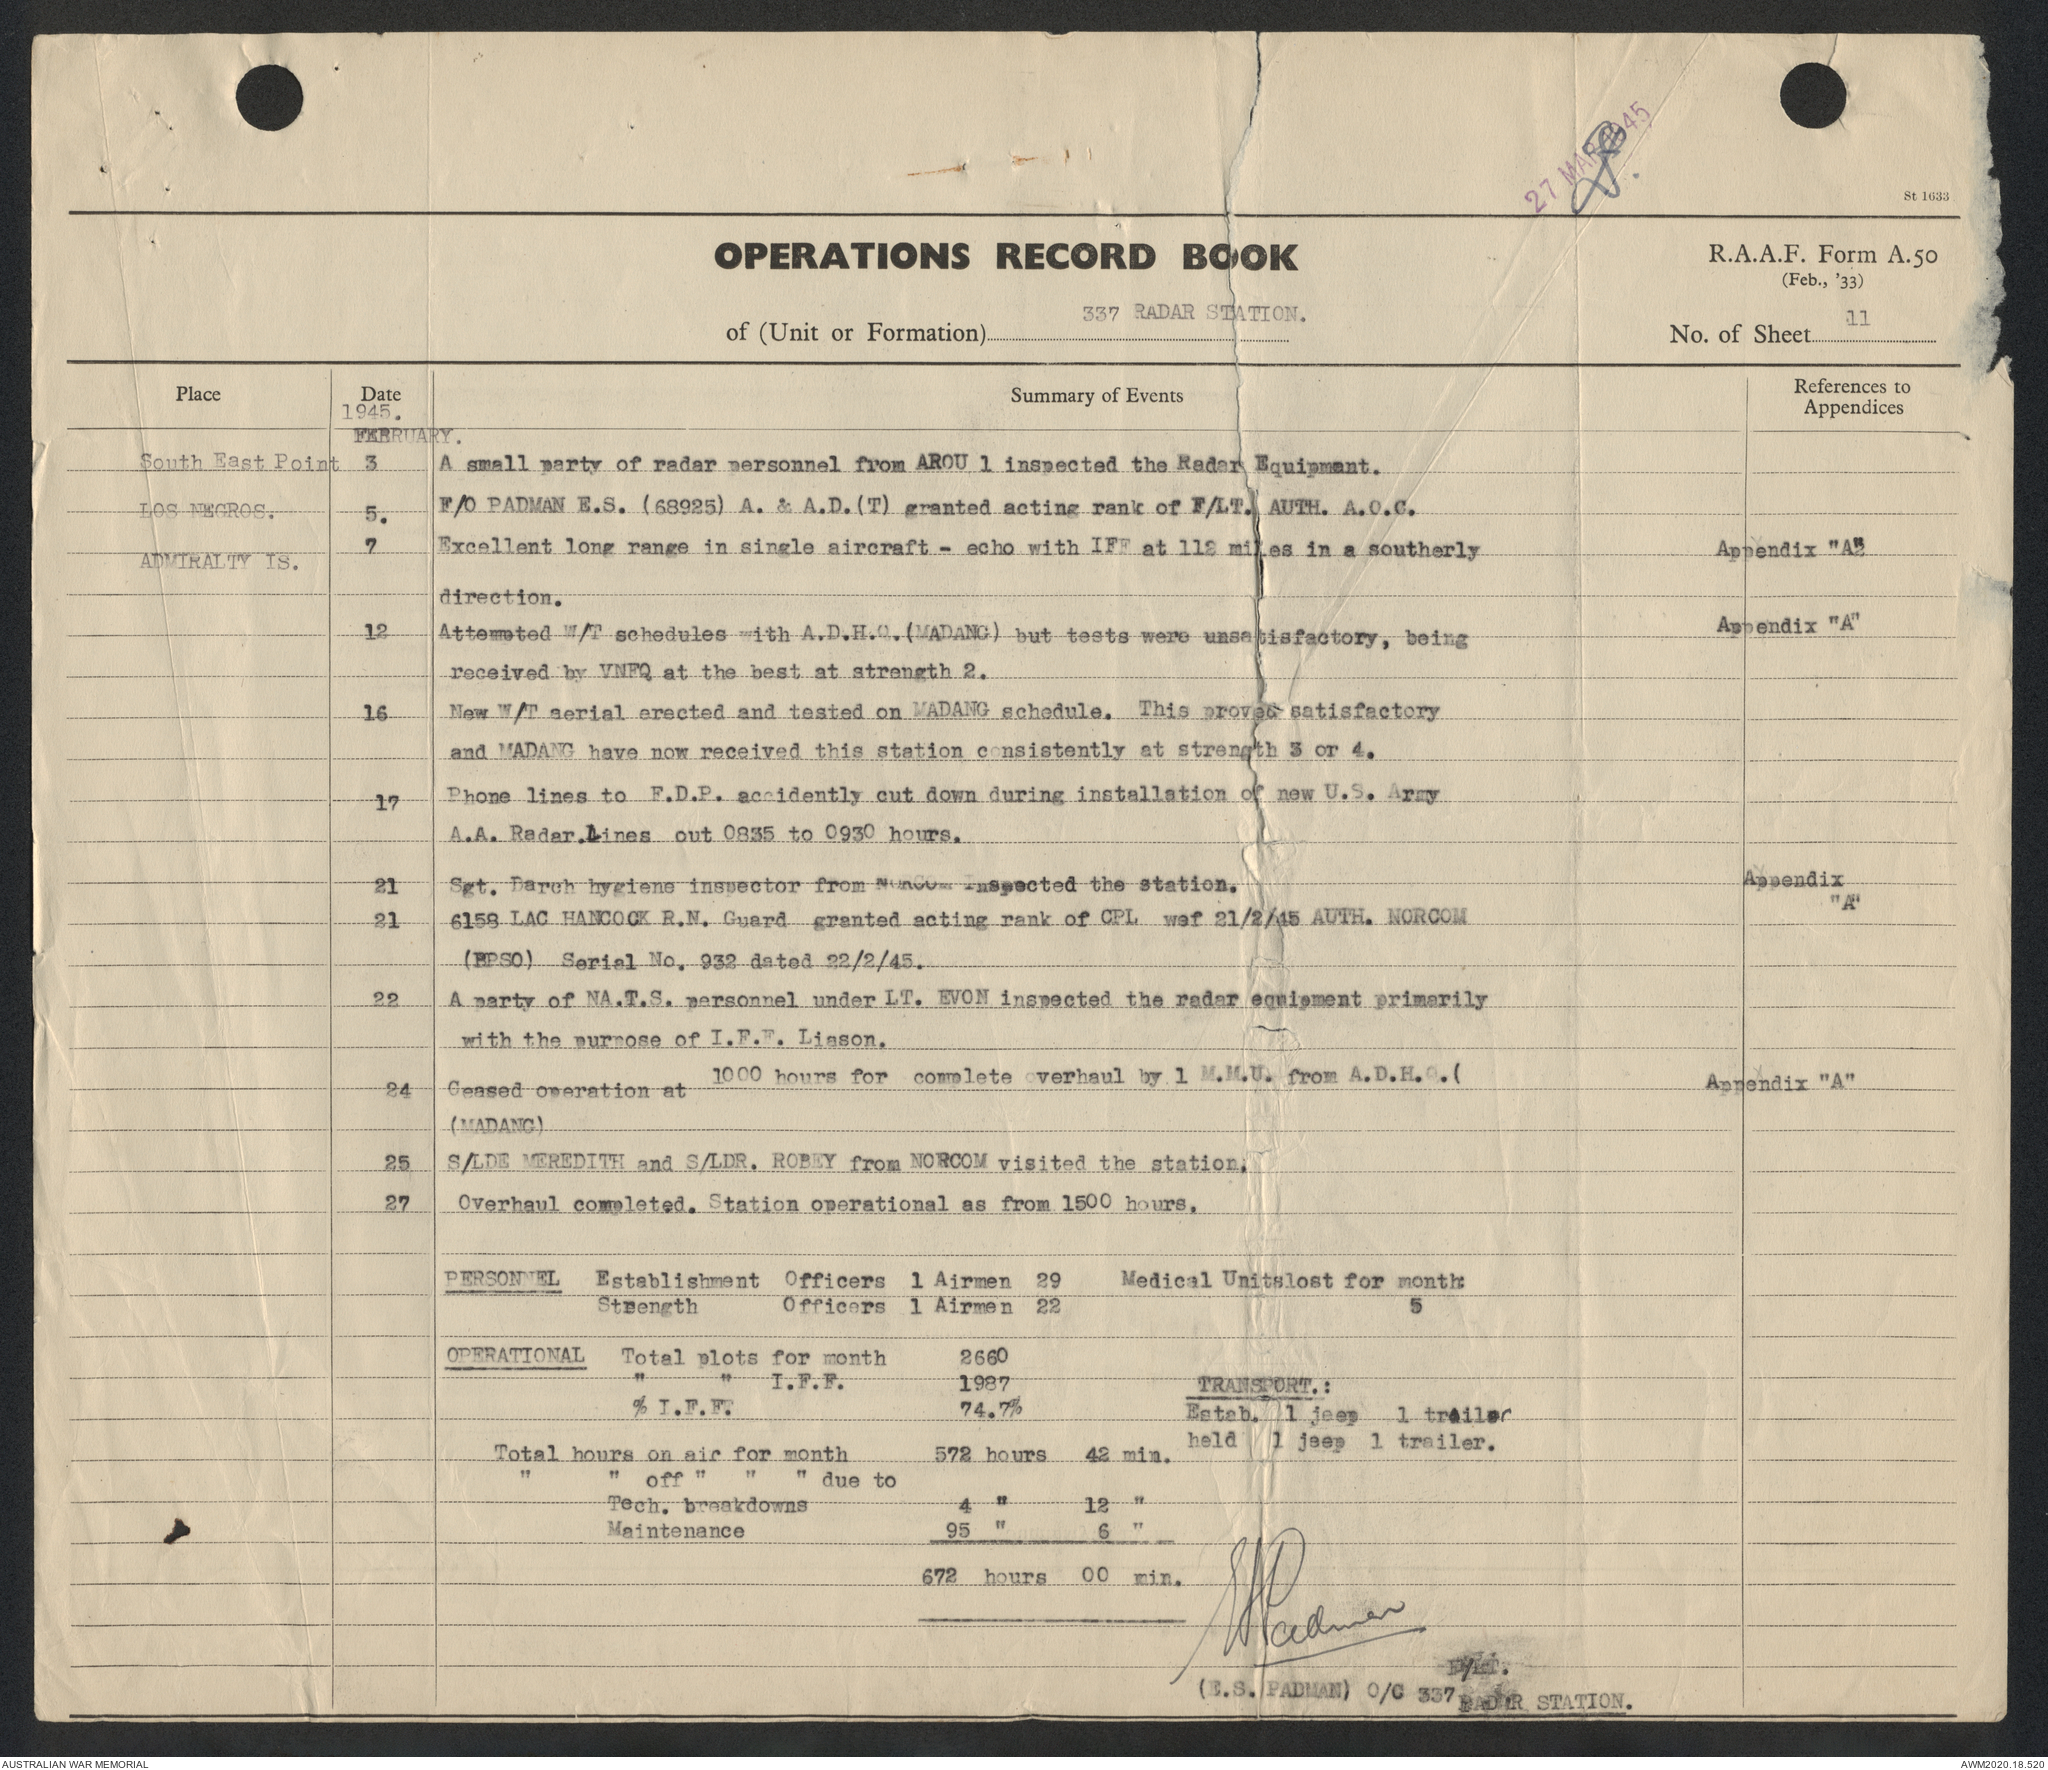 27 MAR 1945
St 1633
OPERATIONS RECORD BOOK
R.A.A.F. Form A.50
(Feb., '33)
of (Unit or Formation) 337 RADAR STATION.
No. of Sheet 11
Place Date Summary of Events References to Appendices
1945.
FEBRUARY.
South East Point 3 A small party of radar personnel from AROU 1 inspected the Radar Equipment.
LOS NEGROS. 5. F/O PADMAN E.S. (68925) A. & A.D.(T) granted acting rank of F/LT. AUTH. A.O.C.
ADMIRALTY IS. 7 Excellent long range in single aircraft - echo with IFF at 112 miles in a southerly Appendix "A"
direction.
12 Attempted W/T schedules with A.D.H.Q.(MADANG) but tests were unsatisfactory, being Appendix "A"
received by VNFQ at the best at strength 2.
16 New W/T aerial erected and tested on MADANG schedule. This proved satisfactory
and MADANG have now received this station consistently at strength 3 or 4.
17 Phone lines to F.D.P. accidently cut down during installation of new U.S. Army
A.A. Radar.Lines out 0835 to 0930 hours.
21 Sgt. Darch hygiene inspector from NORCOM Inspected the station. Appendix "A"
21 6158 LAC HANCOCK R.N. Guard granted acting rank of CPL wef 21/2/45 AUTH. NORCOM
(BPSO) Serial No. 932 dated 22/2/45.
22 A party of NA.T.S. personnel under LT. EVON inspected the radar equipment primarily
with the purpose of I.F.F. Liason.
24 Ceased operation at 1000 hours for complete overhaul by 1 M.M.U. from A.D.H.Q.( Appendix "A"
(MADANG)
25 S/LDE MEREDITH and S/LDR. ROBEY from NORCOM visited the station.
27 Overhaul completed. Station operational as from 1500 hours.
PERSONNEL Establishment Officers 1 Airmen 29 Medical Unitslost for month
Strength Officers 1 Airmen 22 5
OPERATIONAL Total plots for month 2660
" " I.F.F. 1987
TRANSPORT.:
% I.F.F. 74.7%
Estab. 1 jeep 1 trailer
held 1 jeep 1 trailer.
Total hours on air for month 572 hours 42 min.
" " off " " " due to
Tech. breakdowns 4 " 12 "
Maintenance 95 " 6 "
672 hours 00 min.
ES Padman
F/LT.
(E.S. PADMAN) O/C 337 RADAR STATION.
AUSTRALIAN WAR MEMORIAL
AWM2020.18.520